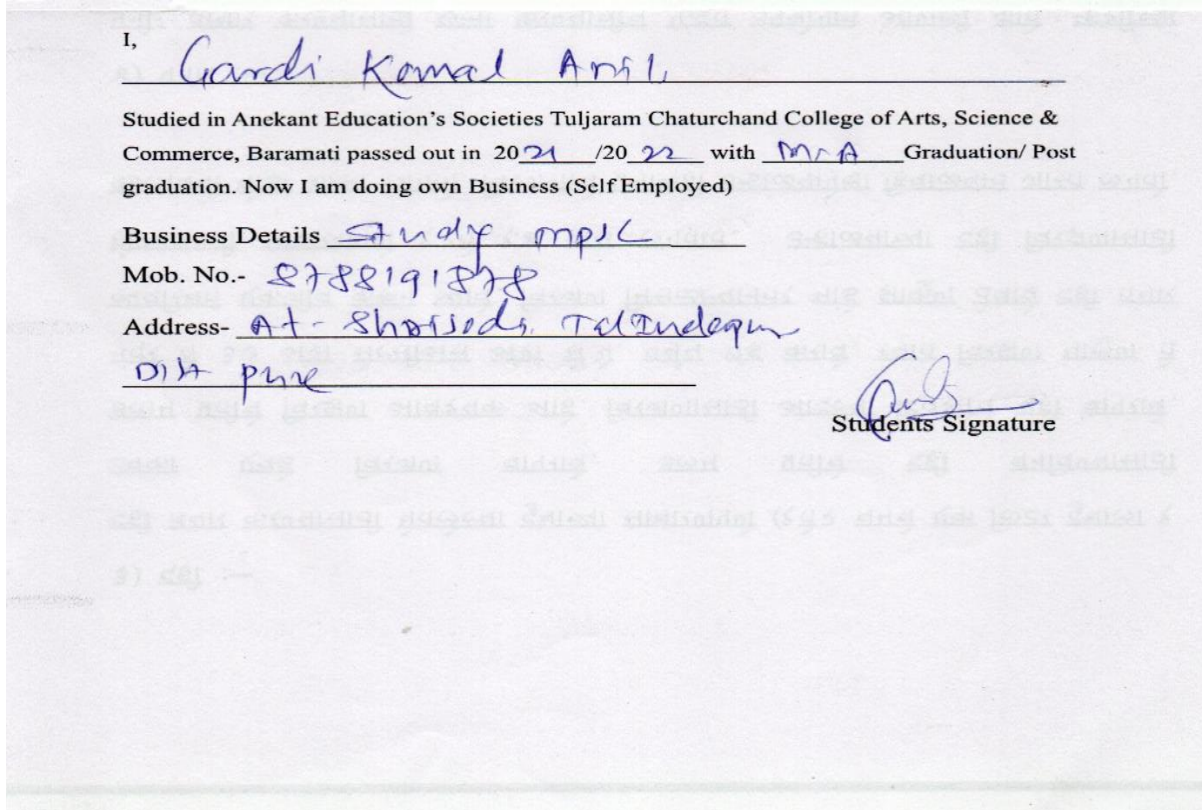 I,
Gardi Komal Anil
Studied in Anekant Education's Societies Tuljaram Chaturchand College of Arts, Science &
Commerce, Baramati passed out in 2021 /2022 with M.A Graduation/ Post
graduation. Now I am doing own Business (Self Employed)
Business Details Study mpsc
Mob. No.- 8788191878
Address- At- Tal Indapur
Dist pune
Students Signature